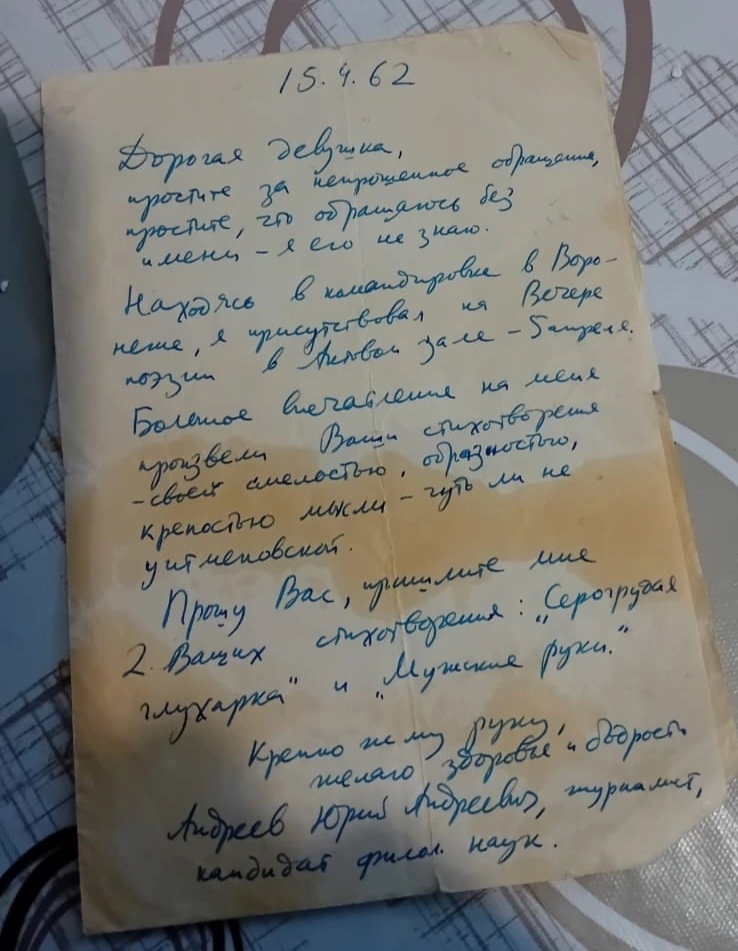 15.4.62
Дорогая девушка,
простите за непрошенное обращение,
простите, что обращаюсь без
имени – я его не знаю.
Находясь в командировке в Воро-
неже, я присутствовал на Вечере
поэзии в Актовом зале – 5 апреля.
Большое впечатление на меня
произвели Ваши стихотворения
– своей смелостью, образностью,
крепостью мысли – чуть ли не
уитменовской.
Прошу Вас, пришлите мне
2. Ваших стихотворения: „Серогрудая
глухарка" и „Мужские руки."
Крепко жму руку,
желаю здоровья и бодрости
Андреев Юрий Андреевич, журналист,
кандидат филол. наук.